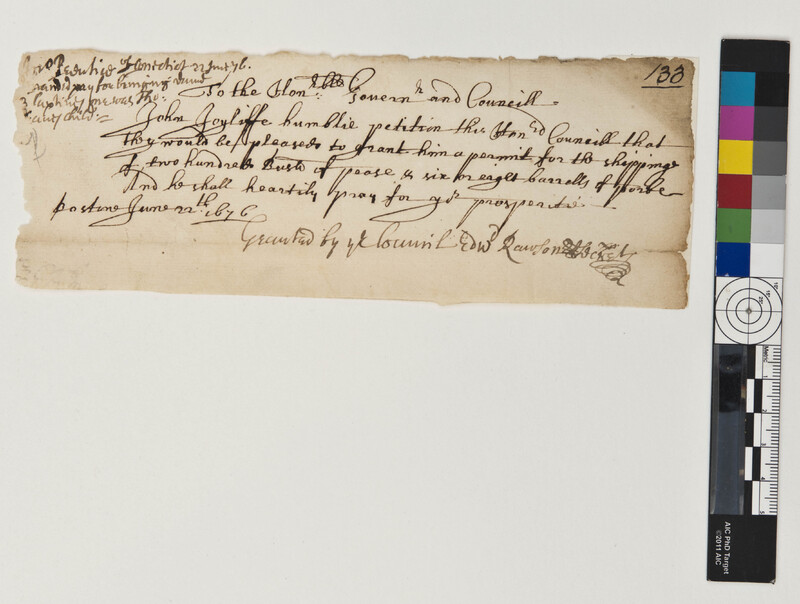 22 June 76.
and pay for bringing
3 Captives one was Tho:
child:
133
To the Hon:ble Govern:r and Councill
John Joyliffe humble petition this Hon:rd Councill that
they would be pleased to grant him a permit for the shipping
of two hundred Bush of pease & six or eight barrells of porke
And he shall heartily pray for yr prosperitie
Bostone June 22th. 1676
Granted by ye Council Edwd Rawson Secret
AIC PhD Target
©2011 AIC
Metric
1
2
3
4
5